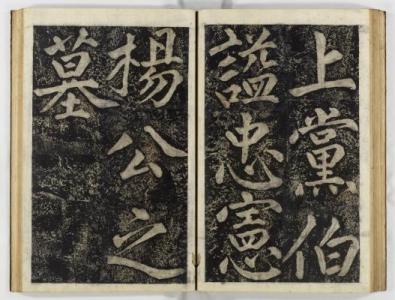 上黨伯
謚忠憲
楊公之
墓